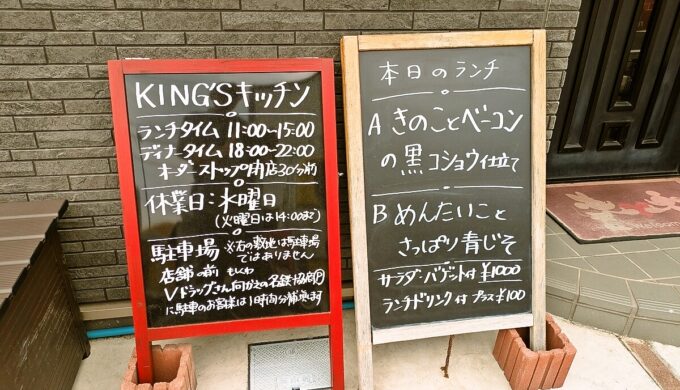 KING'Sキッチン
ランチタイム 11:00~15:00
ディナータイム 18:00~22:00
オーダーストップ閉店30分前
休業日:水曜日
(火曜日は14:00まで)
駐車場 ※右の敷地は駐車場
ではありません
店舗の前 もしくは
Vドラッグさん向かえの名鉄協商P
に駐車のお客様は1時間分補填
本日のランチ
A きのことベーコン
の黒コショウ仕立て
B めんたいこと
さっぱり青じそ
サラダ・バゲット付 ¥1000
ランチドリンク付 プラス¥100